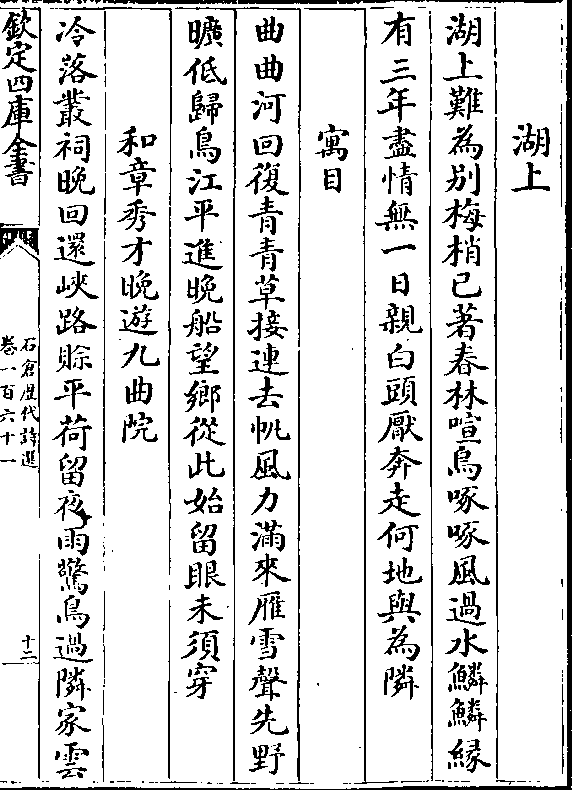 湖上
湖上難為别梅梢已著春林喧鳥啄啄風過水鱗鱗緣
有三年盡情無一日親白頭厭奔走何地與為隣
寓目
曲曲河回復青青草接連去帆風力滿來雁雪聲先野
曠低歸鳥江平進晚船望鄉從此始留眼未須穿
和章秀才晚遊九曲院
冷落叢祠晚回還峽路賒平荷留夜雨驚鳥過隣家雲
欽定四庫全書
石倉歷代詩選
卷一百六十一
十二